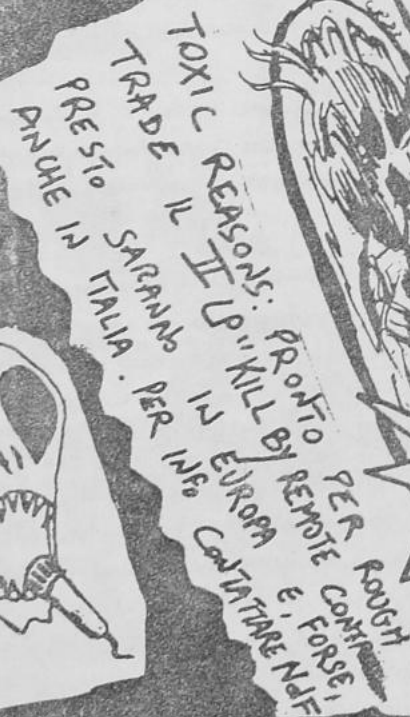 TOXIC REASONS: PRONTO PER ROUGH
TRADE IL II LP "KILL BY REMOTE CONTR
PRESTO SARANNO IN EUROPA E, FORSE,
ANCHE IN ITALIA. PER INFO CONTATTARE NdF